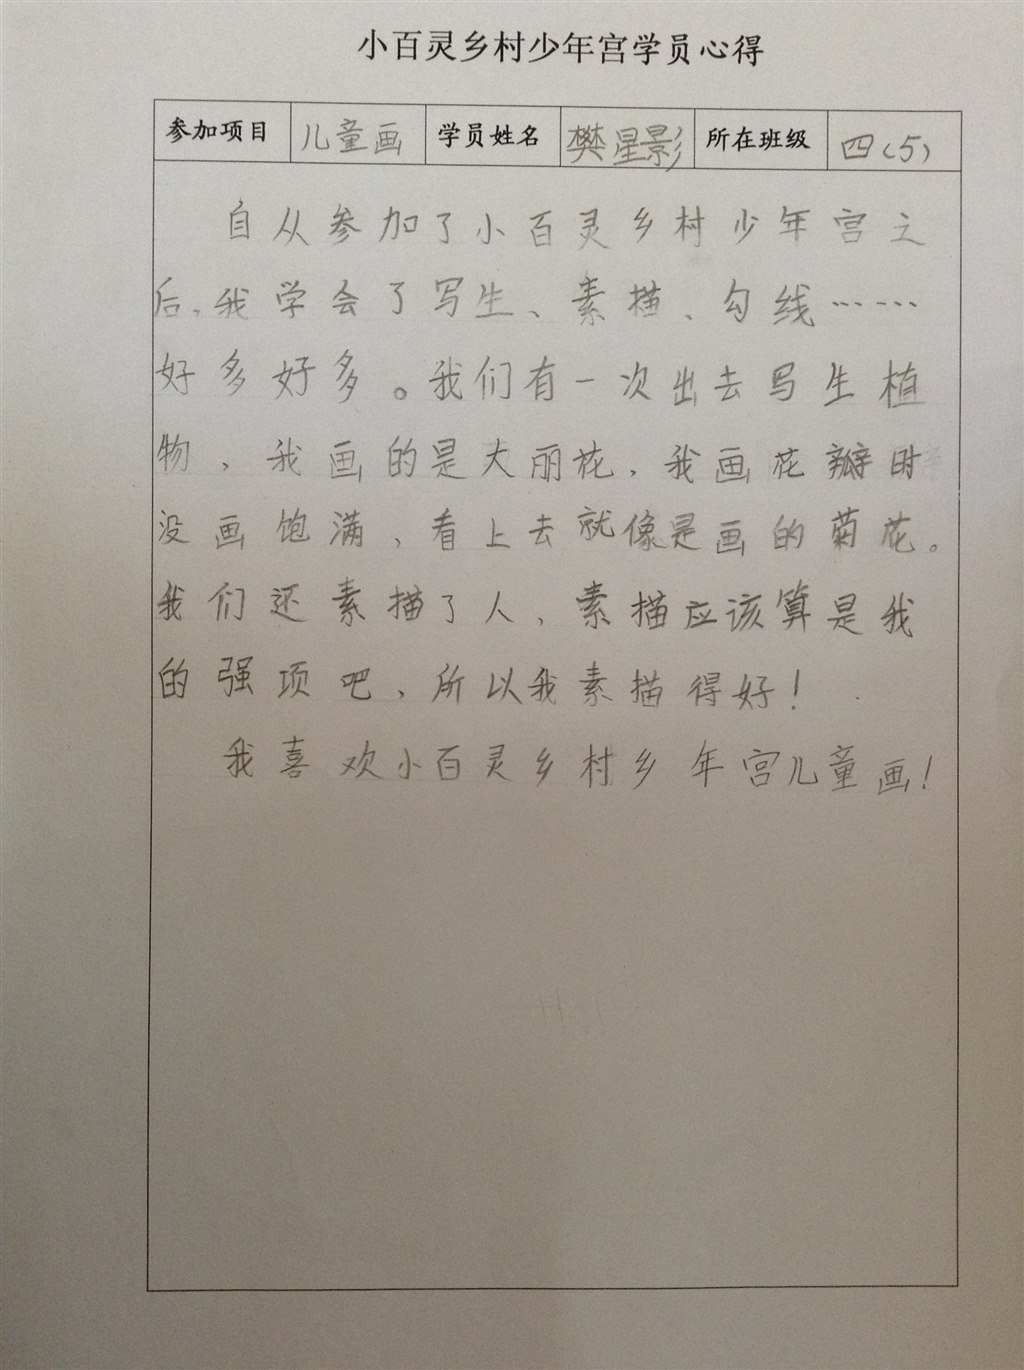 小百灵乡村少年宫学员心得
参加项目 儿童画 学员姓名 樊星影 所在班级 四(5)
自从参加了小百灵乡村少年宫之
后,我学会了写生、素描、勾线……
好多好多。我们有一次出去写生植
物,我画的是大丽花,我画花瓣时
没画饱满,看上去就像是画的菊花。
我们还素描了人,素描应该算是我
的强项吧,所以我素描得好!
我喜欢小百灵乡村乡年宫儿童画!